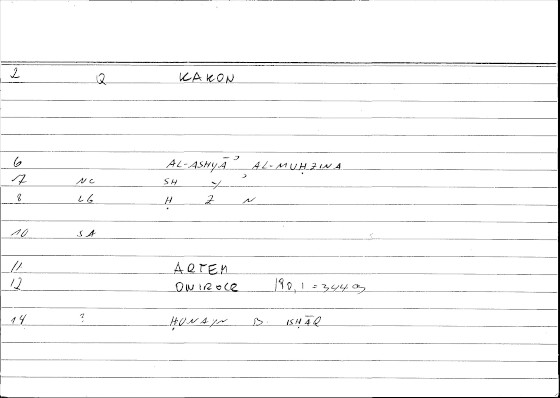 2 Q KAKON
6 AL-ASHYĀʾ AL-MUḤZINA
7 NC SH Y ʾ
8 LG Ḥ Z N
10 SA
11 ARTEM
12 ONIROCR 190,1 = 344
14 ? ḤUNAYN B. ISḤĀQ